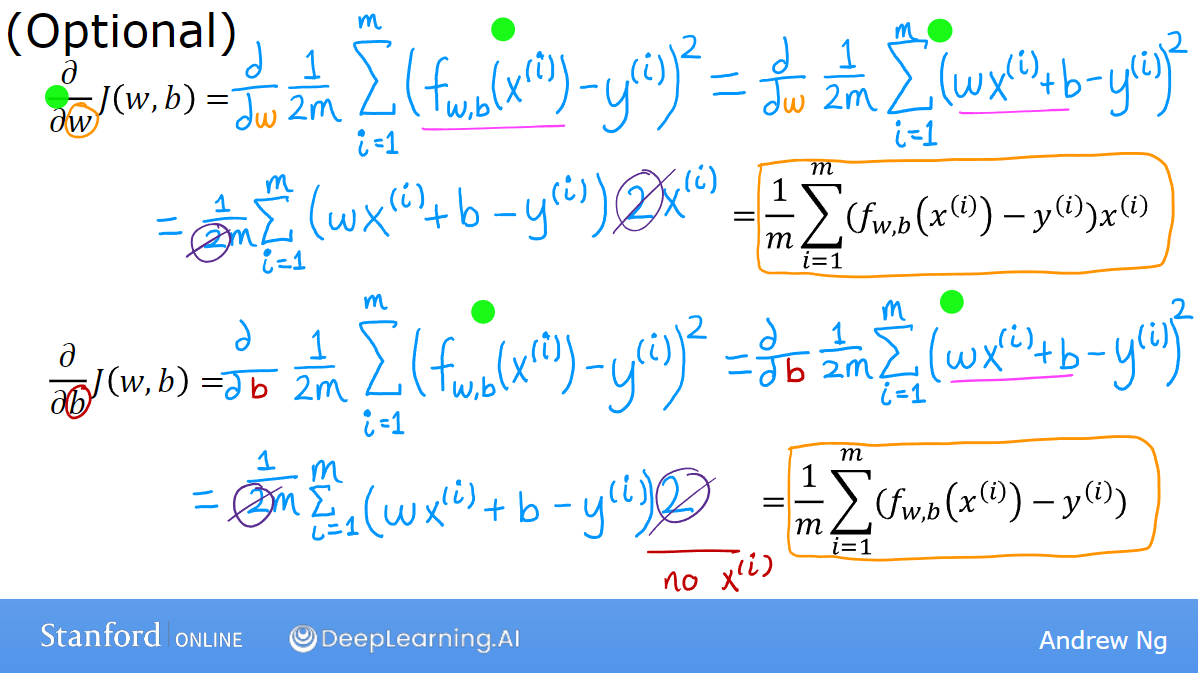 (Optional)
∂/∂w J(w, b) = d/dw 1/2m Σ_{i=1}^{m} (f_{w,b}(x^{(i)}) − y^{(i)})² = d/dw 1/2m Σ_{i=1}^{m} (wx^{(i)} + b − y^{(i)})²
= 1/2m Σ_{i=1}^{m} (wx^{(i)} + b − y^{(i)}) 2x^{(i)} = 1/m Σ_{i=1}^{m} (f_{w,b}(x^{(i)}) − y^{(i)})x^{(i)}
∂/∂b J(w, b) = ∂/∂b 1/2m Σ_{i=1}^{m} (f_{w,b}(x^{(i)}) − y^{(i)})² = ∂/∂b 1/2m Σ_{i=1}^{m} (wx^{(i)} + b − y^{(i)})²
= 1/2m Σ_{i=1}^{m} (wx^{(i)} + b − y^{(i)}) 2 = 1/m Σ_{i=1}^{m} (f_{w,b}(x^{(i)}) − y^{(i)})
no x^{(i)}
Stanford | ONLINE DeepLearning.AI Andrew Ng